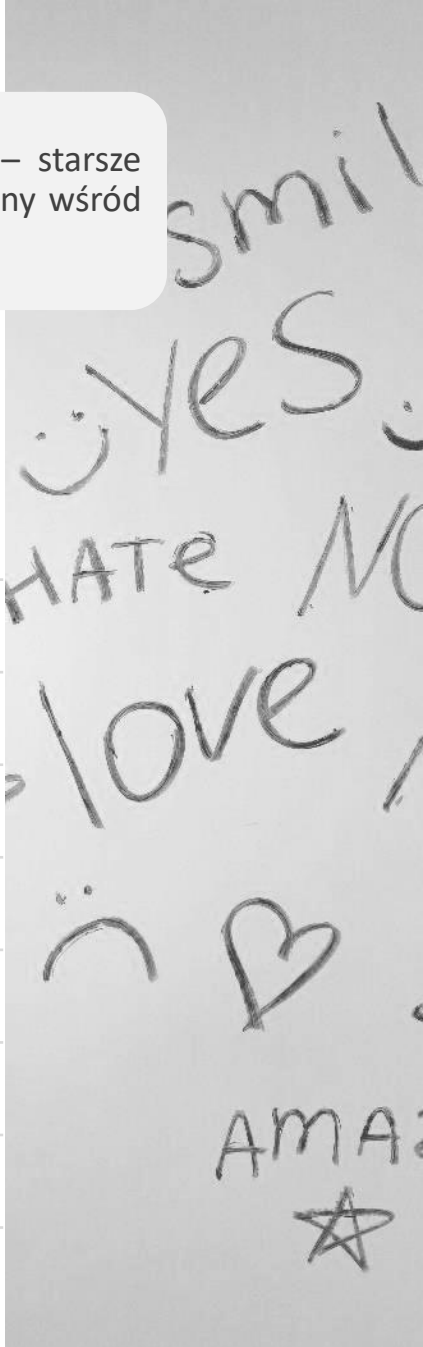 – starsze
ny wśród
smil
yes
HATe NO
love
AMA